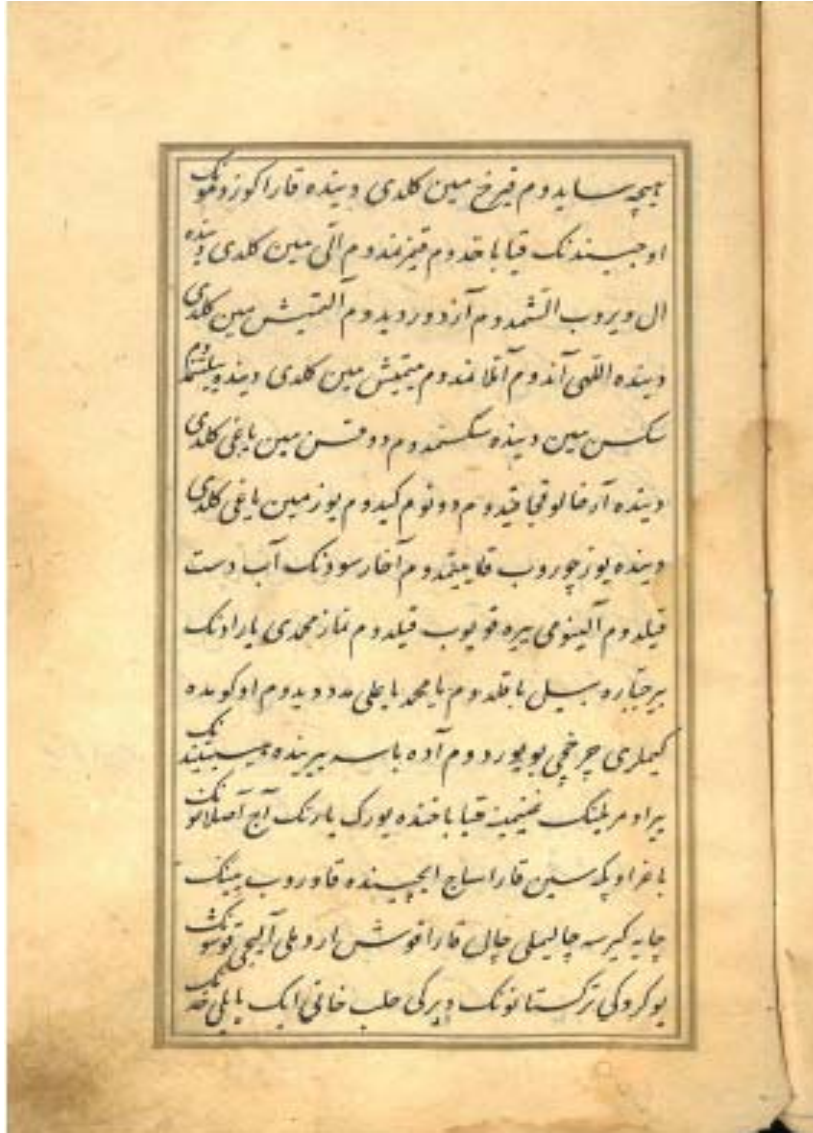 هیچه سایدوم قیرخ مین کلدی دینده قارا کوزومونک
اوجیندنک قیا باخدوم قیزنمدوم الّی مین کلدی دینده
ال ویروب التشمدوم آزدور دیدوم آلتمیش مین کلدی
دینده اللهی آندوم آتلانمدوم یتمیش مین کلدی دینده ییلشمدوم
سکسن مین دینده سکسنمدوم دوقسن مین یاغی کلدی
دینده آرخالوقجا قیدوم دونوم کیدوم یوز مین یاغی کلدی
دینده یوز چوروب قاییتمدوم آخار سودنک آب دست
قیلدوم آلینومی ییره قویوب قیلدوم نماز محمدی یارادنک
بیر جبّاره بیل باقلدوم یا محمد یا علی مدد دیدوم اوکومده
کیملری چرخچی یویوردوم آده باسه ییرینده
ییر اومریلنک قیا باخنده یورک یارنک آج آصلانونک
باغر اوپکه سین قارا ساج ایچینده قاوروب یینک
چایه کیرسه چالیملی چال قارا قوش اردملی آلیجی قوشونک
یوکروکی ترکستانونک دیرکی حلب خانی ایک یایلی